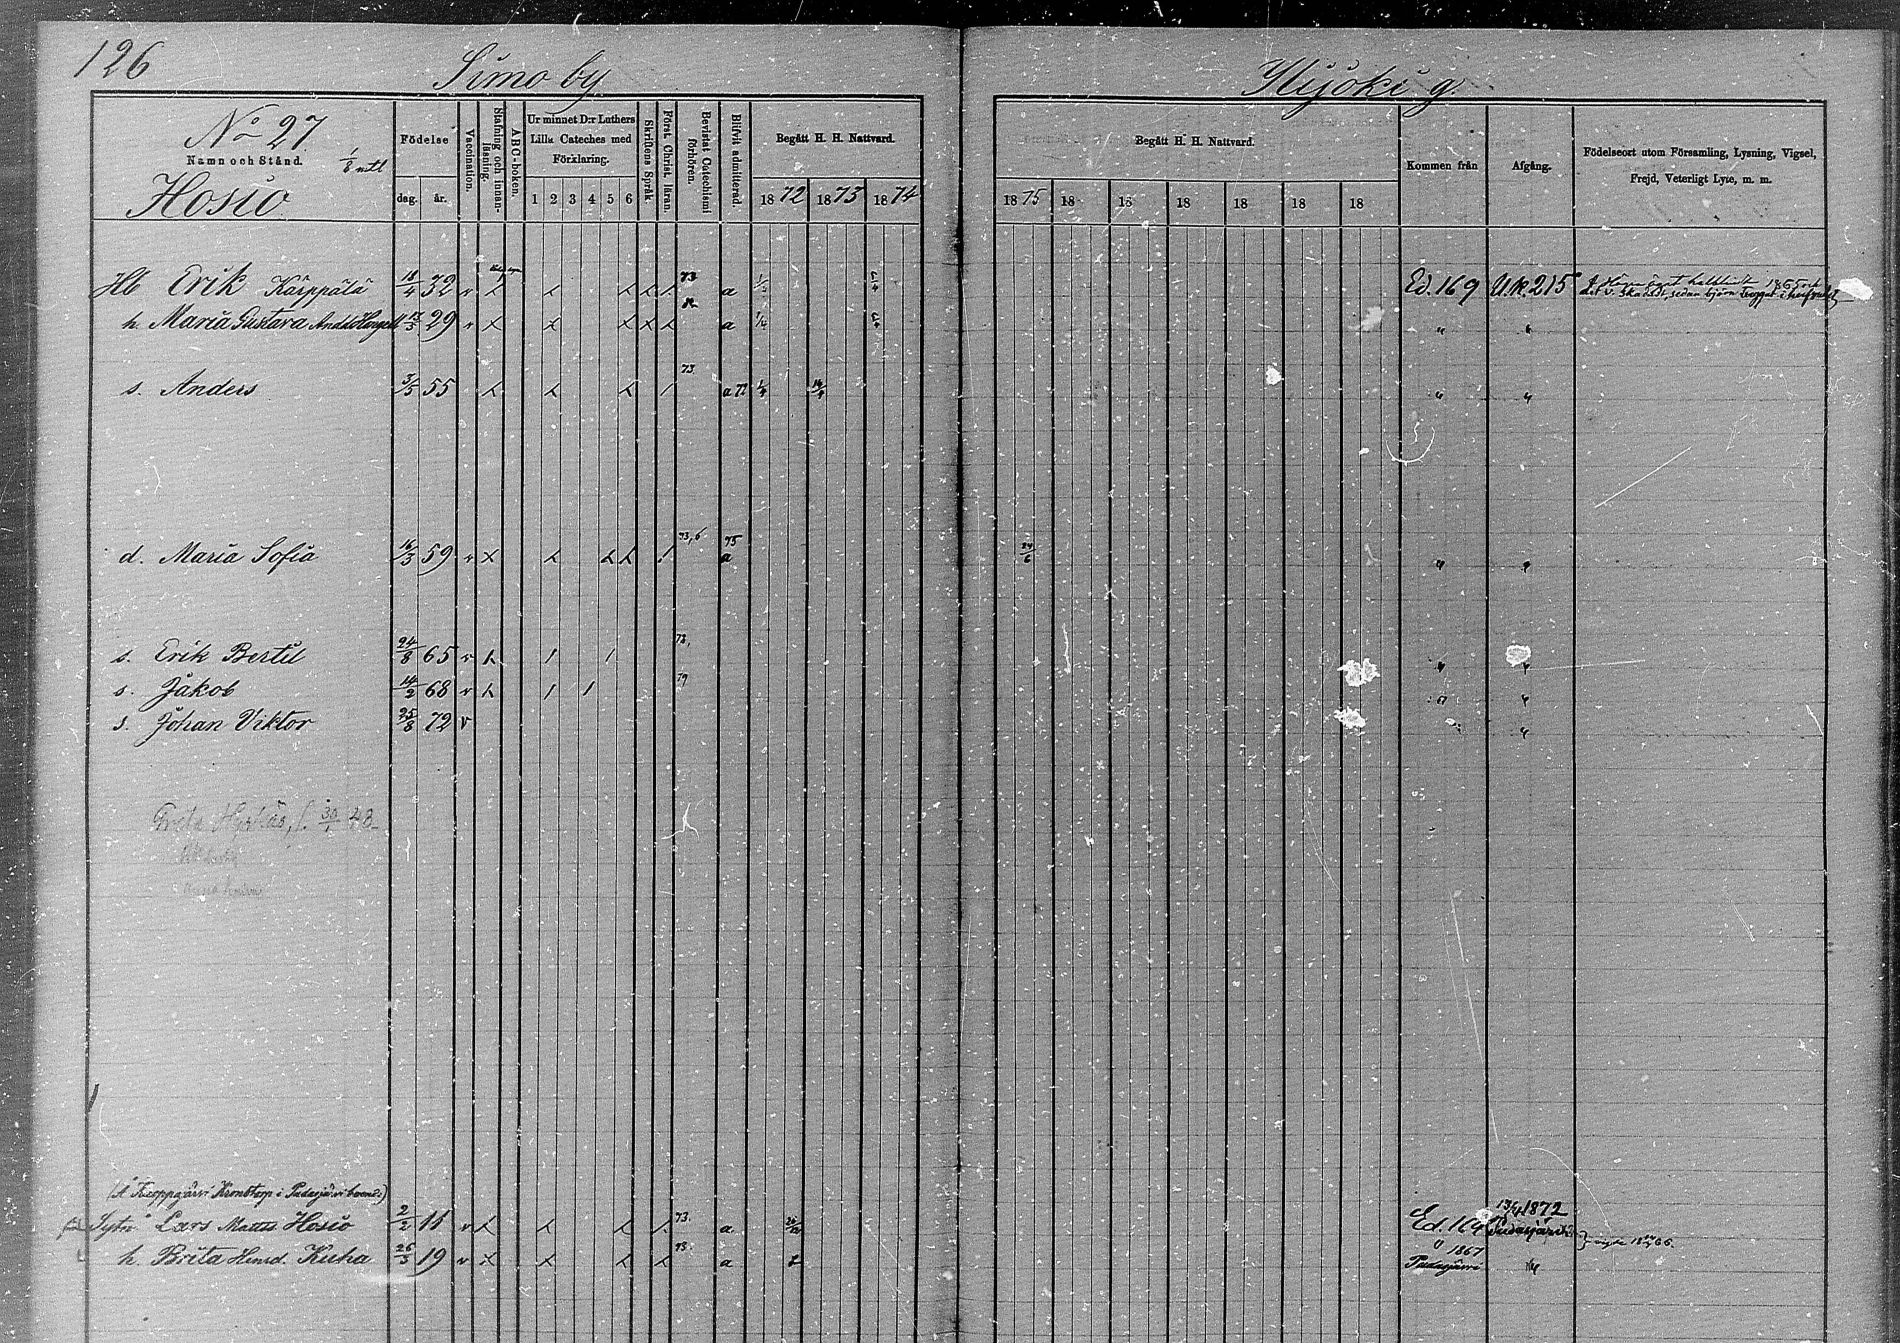 126
Simo by
Hijoki g.
No 27
Namn och Stånd.
1/8 mtl
Hosio
Födelse
dag. år.
Vaccination.
Stafning och innanläsning.
ABC-boken.
Ur minnet D:r Luthers
Lilla Cateches med
Förklaring.
1 2 3 4 5 6
Skriftens Språk.
Först. Christ. läran.
Bevistat Catechismi förhören.
Blifvit admitterad.
Begått H. H. Nattvard.
1872 1873 1874
Begått H. H. Nattvard.
1875 18 18 18 18 18 18
Kommen från
Afgång.
Födelseort utom Församling, Lysning, Vigsel,
Frejd, Veterligt Lyte, m. m.
Hb Erik Karppala 18/4 32 v 73 a Ed. 169 U.k. 215
h. Maria Gustava 29 v a 1/4 " "
s. Anders 3/5 55 73 a 72 1/4 14/4 " "
d. Maria Sofia 16/3 59 v 73,6 75 a 24/6 " "
s. Erik Bertil 24/8 65 v 73, " "
s. Jakob 14/2 68 v 79 " "
s. Johan Viktor 25/8 72 v " "
Greta f. 30/1 48
Kronotorp i Pudasjärvi boende)
Sytn. Lars Matts Hosio 2/2 15 v 73. a. Ed. 164 13/4 1872 Pudasjärvi
h. Brita Henrsd. Kuha 26/3 19 v 73. a " 1867 Pudasjärvi "